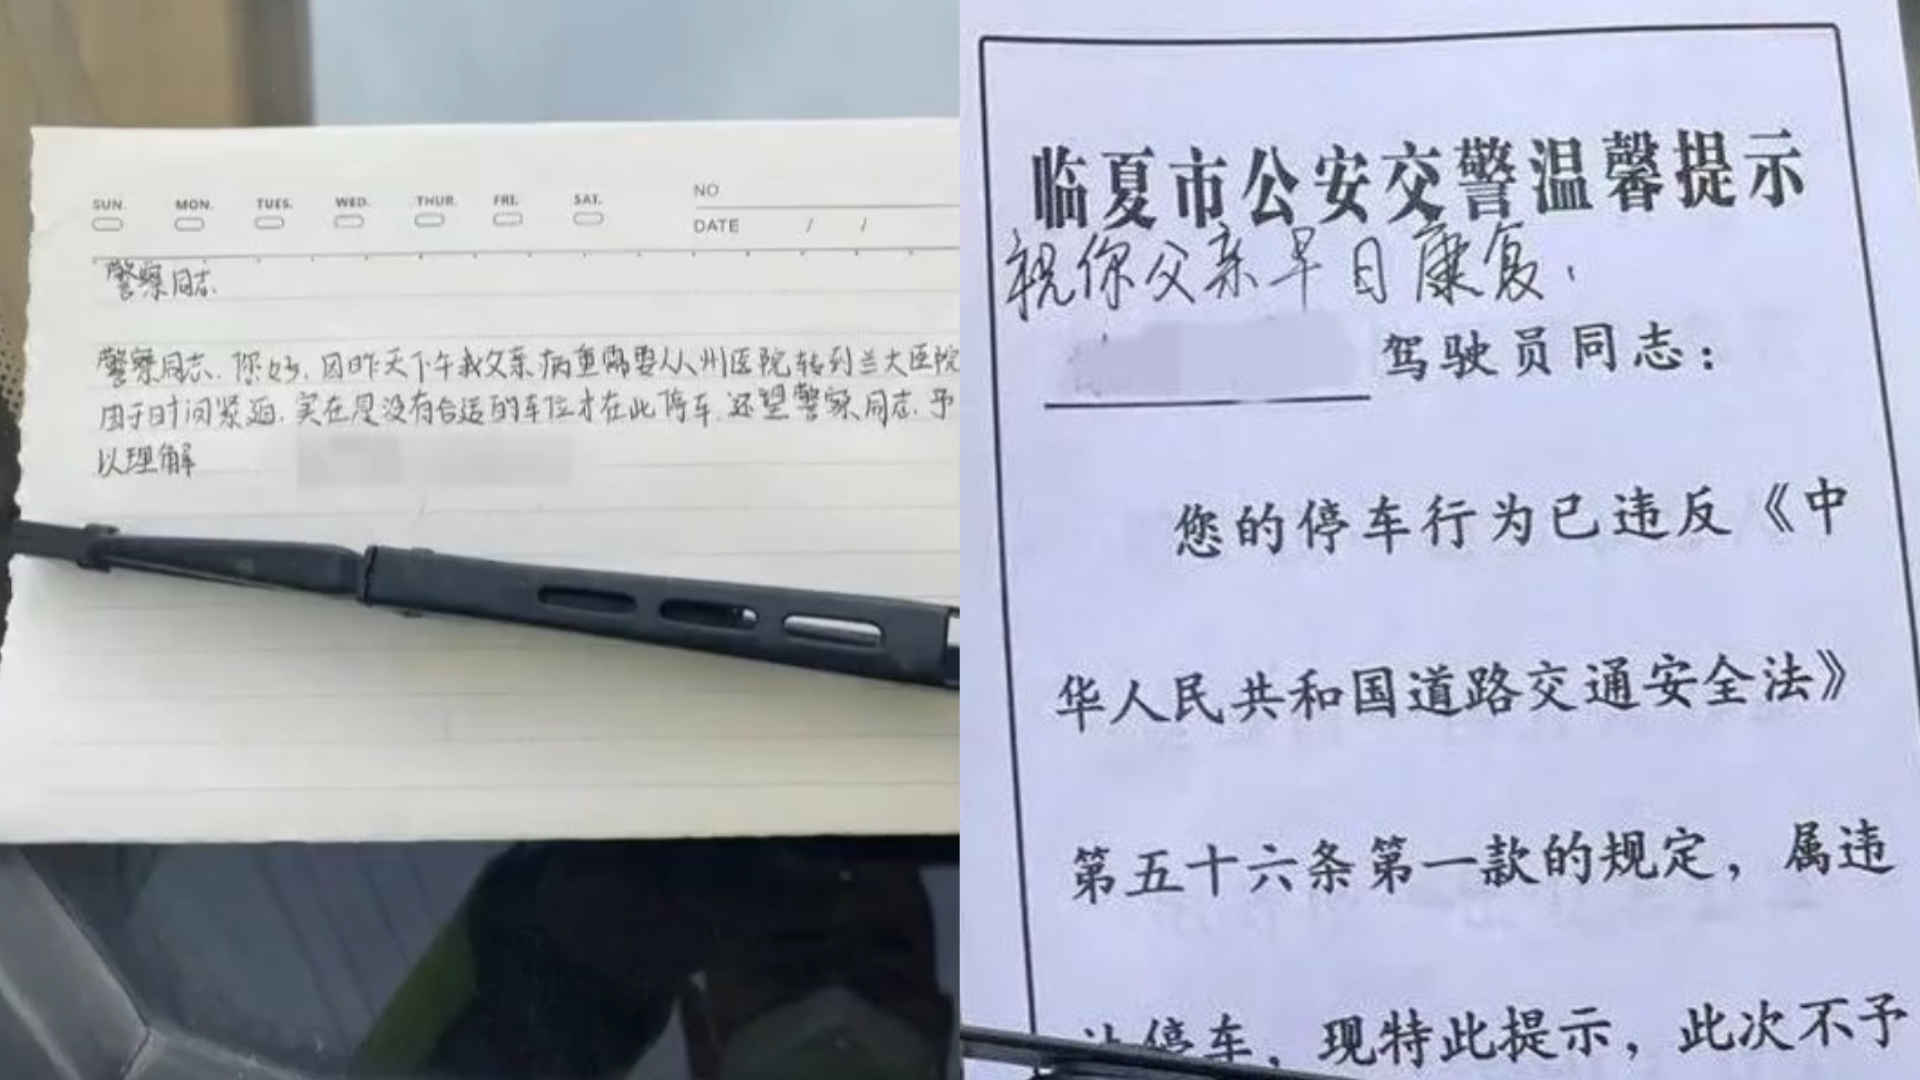 SUN. MON. TUES. WED. THUR. FRI. SAT.
NO
DATE / /
警察同志
警察同志.您好.因昨天下午我父亲病重需要从州医院转到兰大医院
由于时间紧迫.实在是没有合适的车位才在此停车.还望警察同志.予
以理解
临夏市公安交警温馨提示
祝你父亲早日康复.
驾驶员同志：
您的停车行为已违反《中
华人民共和国道路交通安全法》
第五十六条第一款的规定，属违
法停车，现特此提示，此次不予